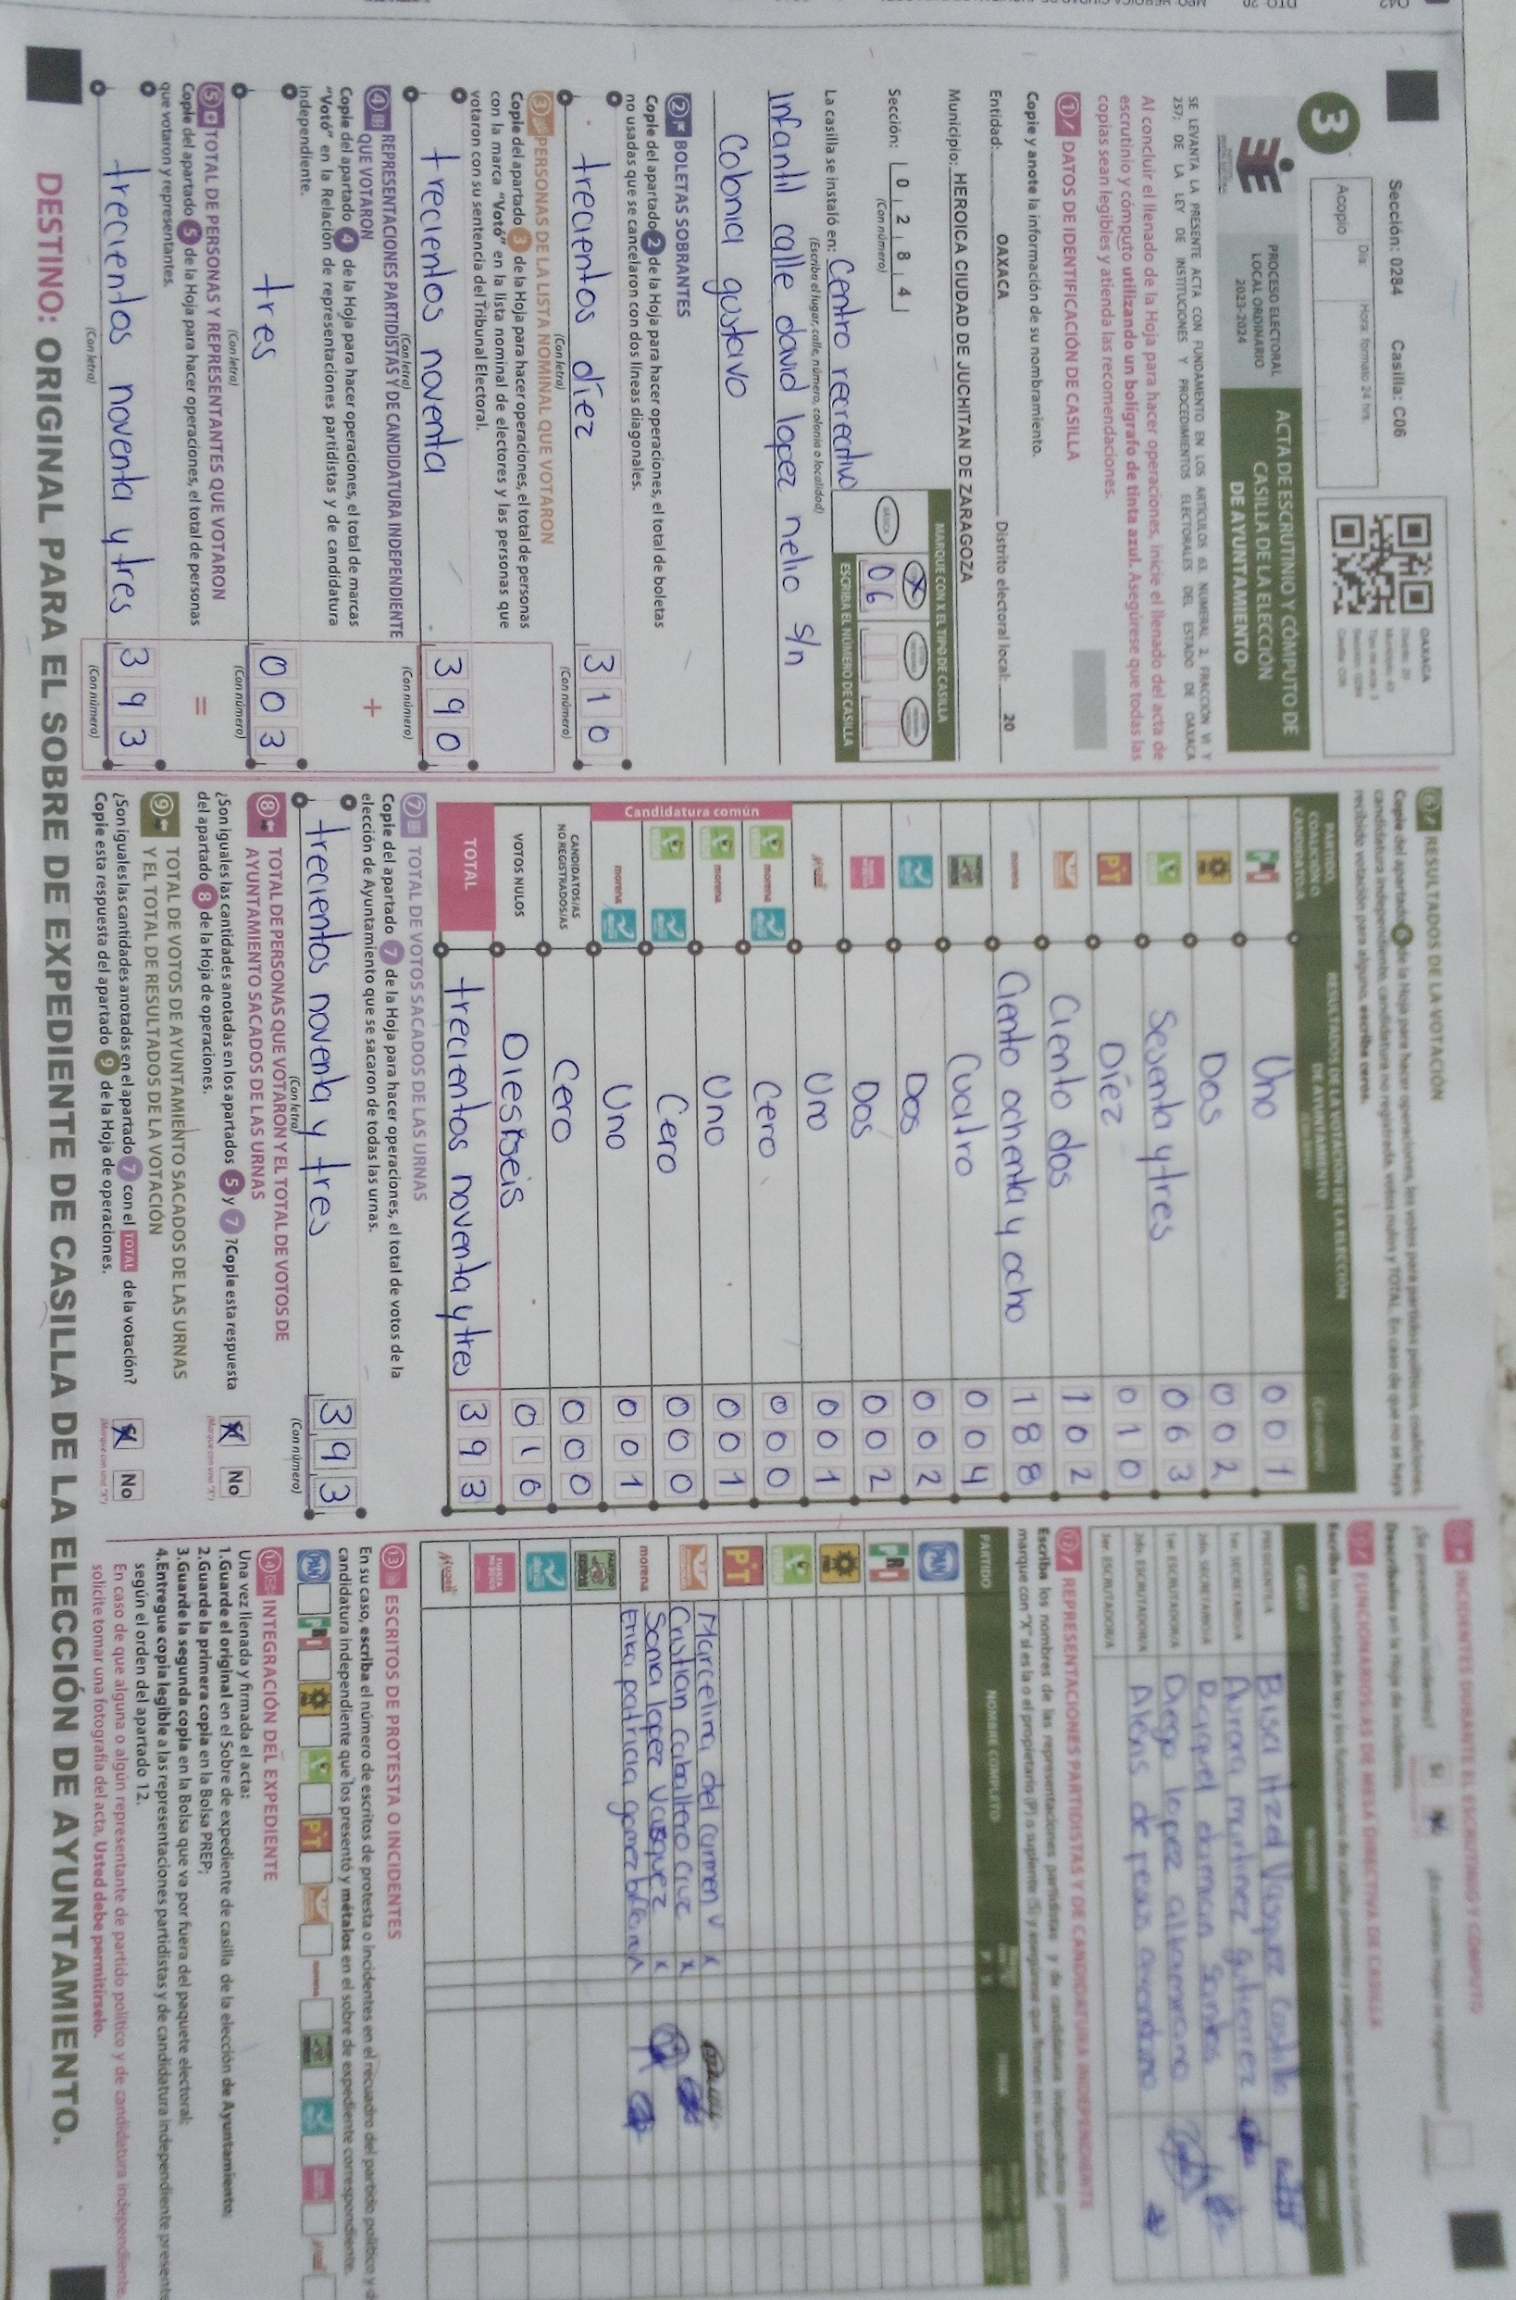 Sección: 0284 Casilla: C06
Acopio
Día:
Hora: formato 24 hrs.
OAXACA
3
PROCESO ELECTORAL
LOCAL ORDINARIO
2023-2024
ACTA DE ESCRUTINIO Y CÓMPUTO DE
CASILLA DE LA ELECCIÓN
DE AYUNTAMIENTO
SE LEVANTA LA PRESENTE ACTA CON FUNDAMENTO EN LOS ARTÍCULOS 63, NUMERAL 2, FRACCIÓN VI Y
257; DE LA LEY DE INSTITUCIONES Y PROCEDIMIENTOS ELECTORALES DEL ESTADO DE OAXACA
Al concluir el llenado de la Hoja para hacer operaciones, inicie el llenado del acta de
escrutinio y cómputo utilizando un bolígrafo de tinta azul. Asegúrese que todas las
copias sean legibles y atienda las recomendaciones.
1 DATOS DE IDENTIFICACIÓN DE CASILLA
Copie y anote la información de su nombramiento.
Entidad: OAXACA Distrito electoral local: 20
Municipio: HEROICA CIUDAD DE JUCHITAN DE ZARAGOZA
Sección: 0 2 8 4
(Con número)
MARQUE CON X EL TIPO DE CASILLA
BÁSICA
X
ESCRIBA EL NÚMERO DE CASILLA
0 6
La casilla se instaló en: Centro recreativo
(Escriba el lugar, calle, número, colonia o localidad)
infantil calle david lopez nelio s/n
Colonia gustavo
2 BOLETAS SOBRANTES
Copie del apartado 2 de la Hoja para hacer operaciones, el total de boletas
no usadas que se cancelaron con dos líneas diagonales.
trecientos diez 3 1 0
(Con letra) (Con número)
3 PERSONAS DE LA LISTA NOMINAL QUE VOTARON
Copie del apartado 3 de la Hoja para hacer operaciones, el total de personas
con la marca "Votó" en la lista nominal de electores y las personas que
votaron con su sentencia del Tribunal Electoral.
trecientos noventa 3 9 0
(Con letra) (Con número)
4 REPRESENTACIONES PARTIDISTAS Y DE CANDIDATURA INDEPENDIENTE
QUE VOTARON
+
Copie del apartado 4 de la Hoja para hacer operaciones, el total de marcas
"Votó" en la Relación de representaciones partidistas y de candidatura
independiente.
tres 0 0 3
(Con letra) (Con número)
5 TOTAL DE PERSONAS Y REPRESENTANTES QUE VOTARON
=
Copie del apartado 5 de la Hoja para hacer operaciones, el total de personas
que votaron y representantes.
trecientos noventa y tres 3 9 3
(Con letra) (Con número)
6 RESULTADOS DE LA VOTACIÓN
Copie del apartado 6 de la Hoja para hacer operaciones, los votos para partidos políticos, coaliciones,
candidatura independiente, candidatura no registrada, votos nulos y TOTAL. En caso de que no se haya
recibido votación para alguno, escriba ceros.
PARTIDO,
COALICIÓN O
CANDIDATO/A
RESULTADOS DE LA VOTACIÓN DE LA ELECCIÓN
DE AYUNTAMIENTO
PRI Uno 0 0 1
Dos 0 0 2
Sesenta y tres 0 6 3
PT Diez 0 1 0
Ciento dos 1 0 2
morena Ciento ochenta y ocho 1 8 8
Cuatro 0 0 4
Dos 0 0 2
Dos 0 0 2
Uno 0 0 1
Candidatura común
morena Cero 0 0 0
morena Uno 0 0 1
Cero 0 0 0
morena Uno 0 0 1
CANDIDATOS/AS
NO REGISTRADOS/AS
Cero 0 0 0
VOTOS NULOS Diesiseis 0 1 6
TOTAL trecientos noventa y tres 3 9 3
7 TOTAL DE VOTOS SACADOS DE LAS URNAS
Copie del apartado 7 de la Hoja para hacer operaciones, el total de votos de la
elección de Ayuntamiento que se sacaron de todas las urnas.
trecientos noventa y tres 3 9 3
(Con letra) (Con número)
8 TOTAL DE PERSONAS QUE VOTARON Y EL TOTAL DE VOTOS DE
AYUNTAMIENTO SACADOS DE LAS URNAS
¿Son iguales las cantidades anotadas en los apartados 5 y 7 ?Copie esta respuesta
del apartado 8 de la Hoja de operaciones.
No
9 TOTAL DE VOTOS DE AYUNTAMIENTO SACADOS DE LAS URNAS
Y EL TOTAL DE RESULTADOS DE LA VOTACIÓN
¿Son iguales las cantidades anotadas en el apartado 7 con el TOTAL de la votación?
Copie esta respuesta del apartado 9 de la Hoja de operaciones.
No
INCIDENTES DURANTE EL ESCRUTINIO Y CÓMPUTO
¿Se presentaron incidentes? Sí
FUNCIONARIOS/AS DE MESA DIRECTIVA DE CASILLA
CARGO
PRESIDENTE/A
1er. SECRETARIO/A Aurora martinez gutierrez
2do. SECRETARIO/A
1er. ESCRUTADOR/A Diego lopez
2do. ESCRUTADOR/A
3er. ESCRUTADOR/A
12 REPRESENTACIONES PARTIDISTAS Y DE CANDIDATURA INDEPENDIENTE
Escriba los nombres de las representaciones partidistas y de candidatura independiente presentes,
marque con "X" si es la o el propietario (P) o suplente (S) y asegúrese que firmen en su totalidad.
PARTIDO NOMBRE COMPLETO P S
PAN
PRI
PT
Marcelina del Carmen V x
Cristian Caballero Cruz x
morena Sonia lopez Vasquez x
Erika patricia gomez
13 ESCRITOS DE PROTESTA O INCIDENTES
En su caso, escriba el número de escritos de protesta o incidentes en el recuadro del partido político y
candidatura independiente que los presentó y métalos en el sobre de expediente correspondiente.
PAN PRI PT morena
14 INTEGRACIÓN DEL EXPEDIENTE
Una vez llenada y firmada el acta:
1.Guarde el original en el Sobre de expediente de casilla de la elección de Ayuntamiento;
2.Guarde la primera copia en la Bolsa PREP;
3.Guarde la segunda copia en la Bolsa que va por fuera del paquete electoral;
4.Entregue copia legible a las representaciones partidistas y de candidatura independiente presentes
según el orden del apartado 12.
En caso de que alguna o algún representante de partido político y de candidatura independiente,
solicite tomar una fotografía del acta, Usted debe permitírselo.
DESTINO: ORIGINAL PARA EL SOBRE DE EXPEDIENTE DE CASILLA DE LA ELECCIÓN DE AYUNTAMIENTO.